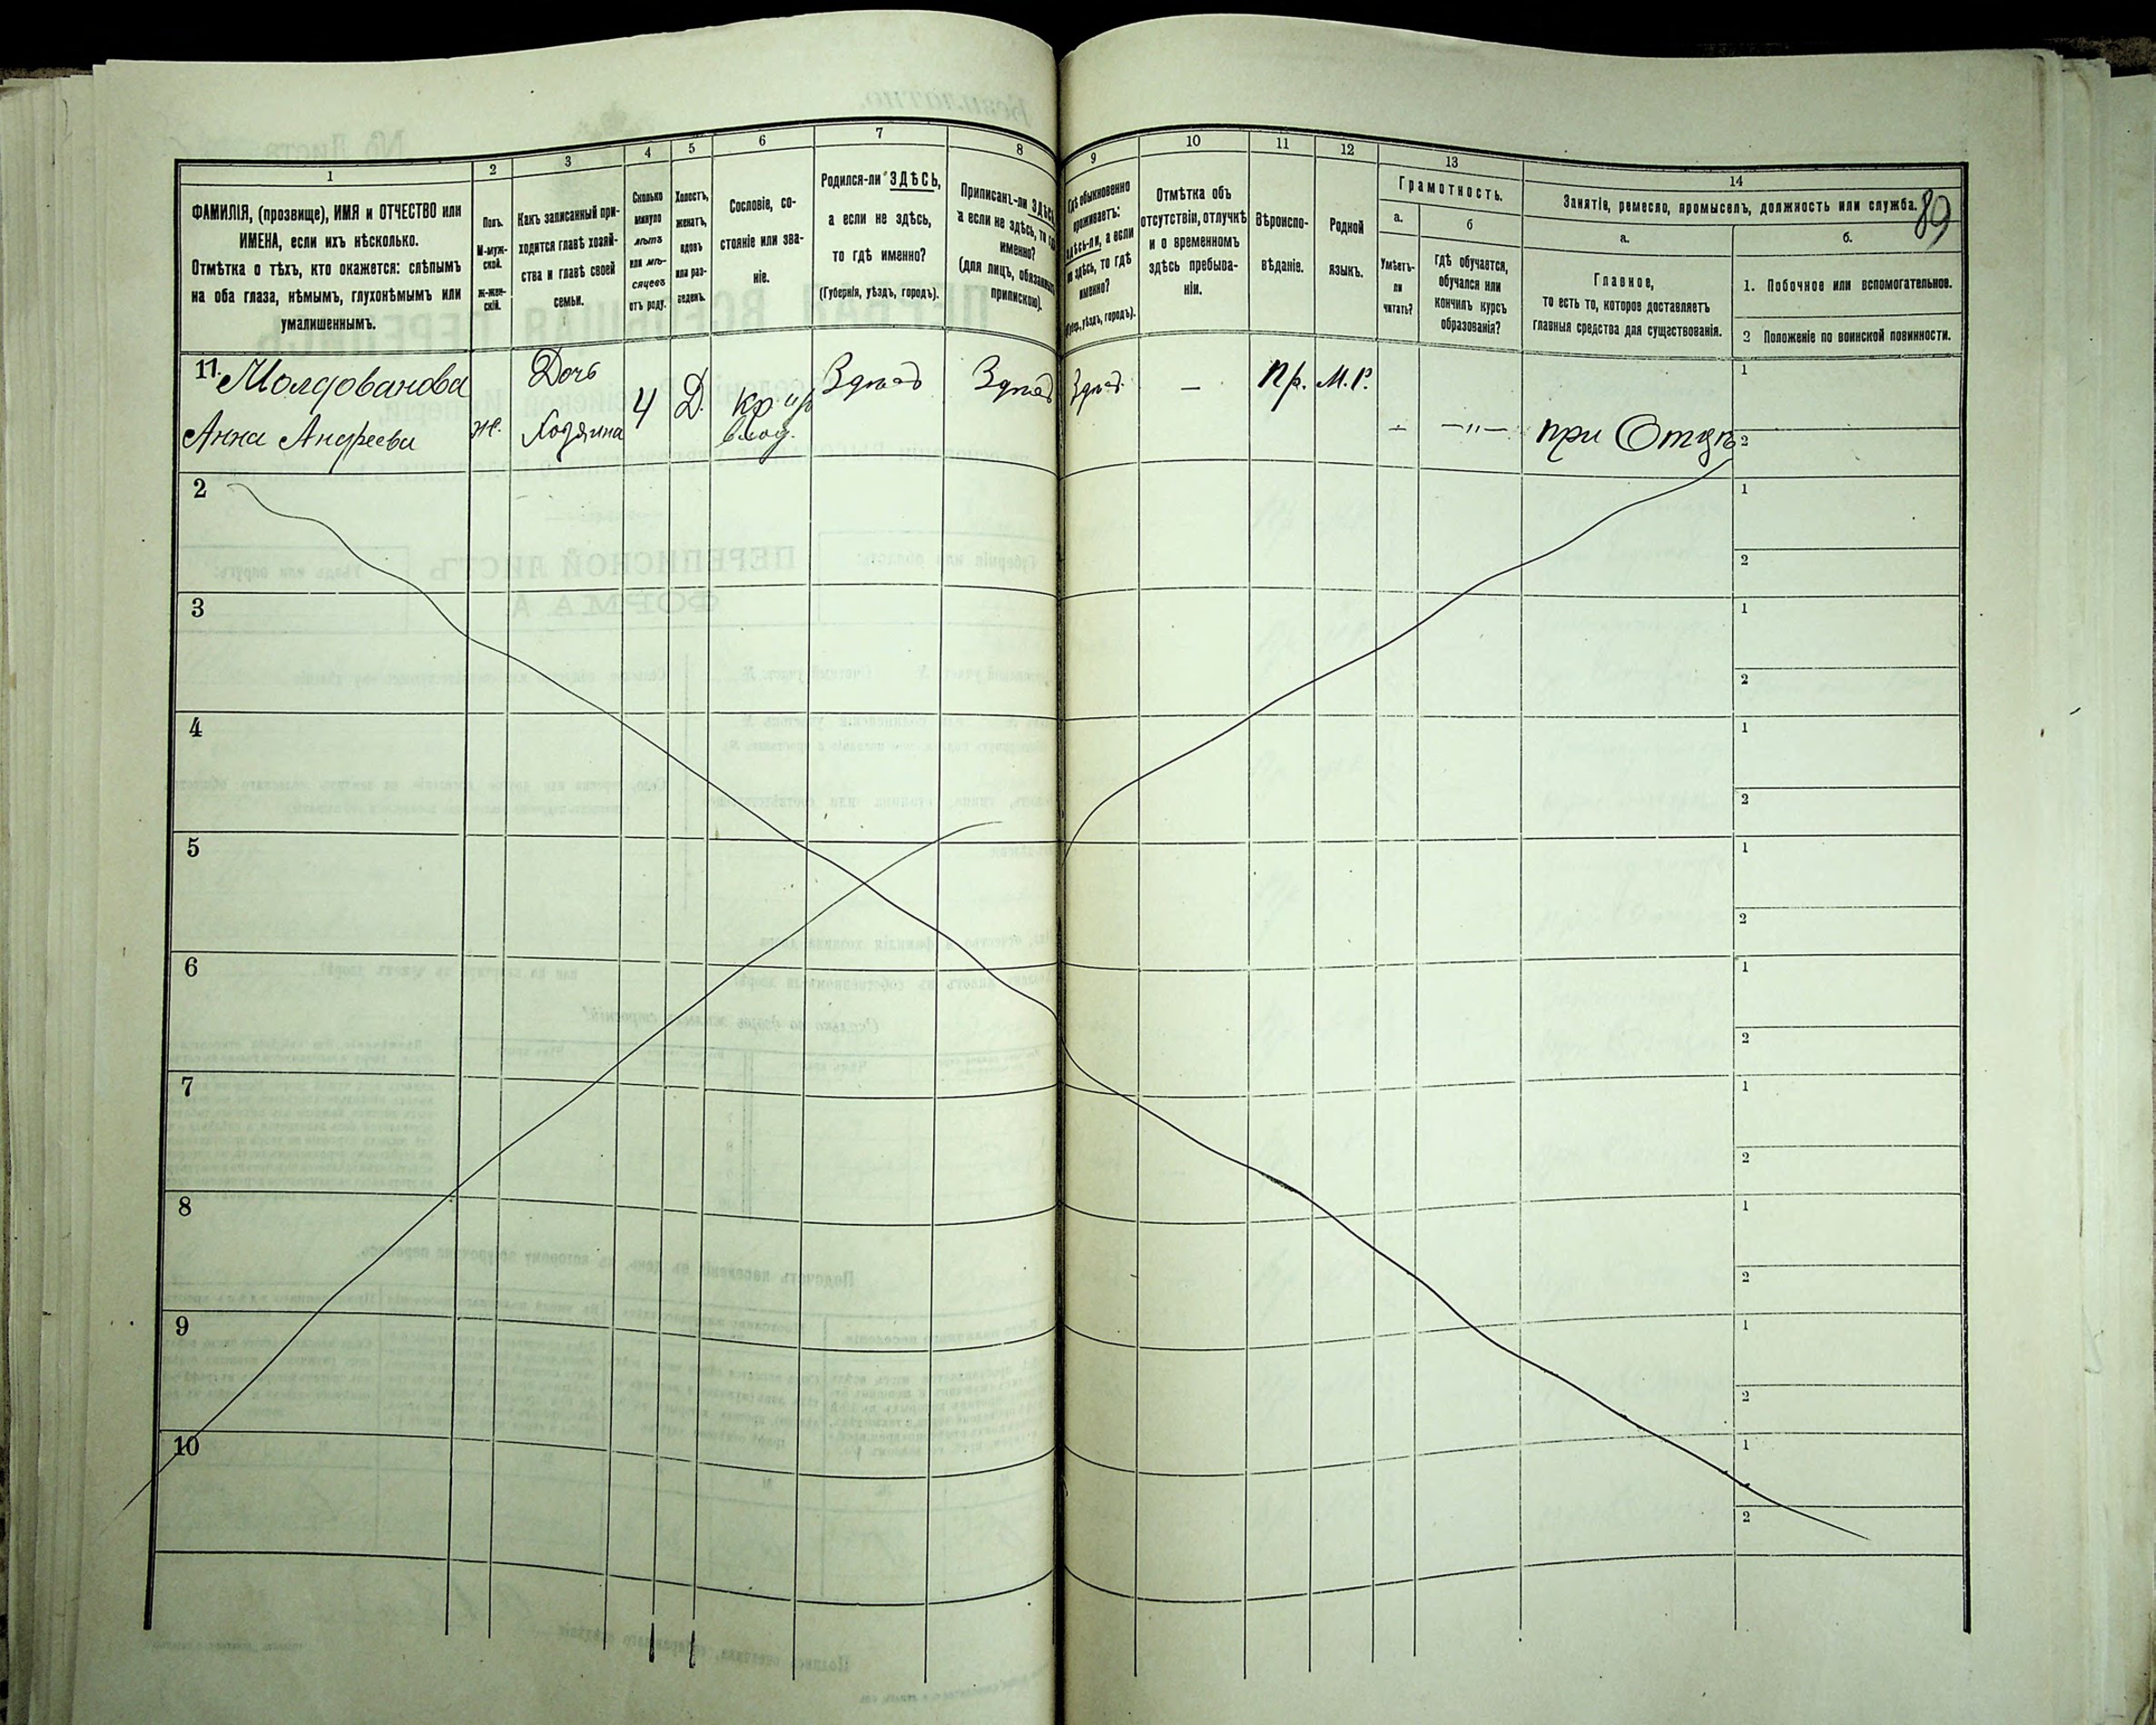 1
2
3
4
5
6
7
8
9
10
11
12
13
14
89
ФАМИЛІЯ, (прозвище), ИМЯ и ОТЧЕСТВО или
ИМЕНА, если ихъ нѣсколько.
Отмѣтка о тѣхъ, кто окажется: слѣпымъ
на оба глаза, нѣмымъ, глухонѣмымъ или
умалишеннымъ.
Полъ.
М-муж-
ской.
Ж-жен-
скій.
Какъ записанный при-
ходится главѣ хозяй-
ства и главѣ своей
семьи.
Сколько
минуло
лѣтъ
или мѣ-
сяцевъ
отъ роду.
Холостъ,
женатъ,
вдовъ
или раз-
веденъ.
Сословіе, со-
стояніе или зва-
ніе.
Родился-ли ЗДѢСЬ,
а если не здѣсь,
то гдѣ именно?
(Губернія, уѣздъ, городъ).
Приписанъ-ли ЗДѢСЬ
а если не здѣсь, то гдѣ
именно?
(для лицъ, обязанныхъ
припискою).
Гдѣ обыкновенно
проживаетъ:
здѣсь-ли, а если
не здѣсь, то гдѣ
именно?
(Губер., уѣздъ, городъ).
Отмѣтка объ
отсутствіи, отлучкѣ
и о временномъ
здѣсь пребыва-
ніи.
Вѣроиспо-
вѣданіе.
Родной
языкъ.
Грамотность.
а.
Умѣетъ-
ли
читать?
б
гдѣ обучается,
обучался или
кончилъ курсъ
образованія?
Занятіе, ремесло, промыселъ, должность или служба.
а.
Главное,
то есть то, которое доставляетъ
главныя средства для существованія.
б.
1. Побочное или вспомогательное.
2 Положеніе по воинской повинности.
11. Молдованова
Анна Андреева
ж.
Дочь
Хозяина
4
Д.
Здѣсь
Здѣсь
Здѣсь
—
Пр.
М. Р.
—
—"—
при Отцѣ
1
2
2
1
2
3
1
2
4
1
2
5
1
2
6
1
2
7
1
2
8
1
2
9
1
2
10
1
2